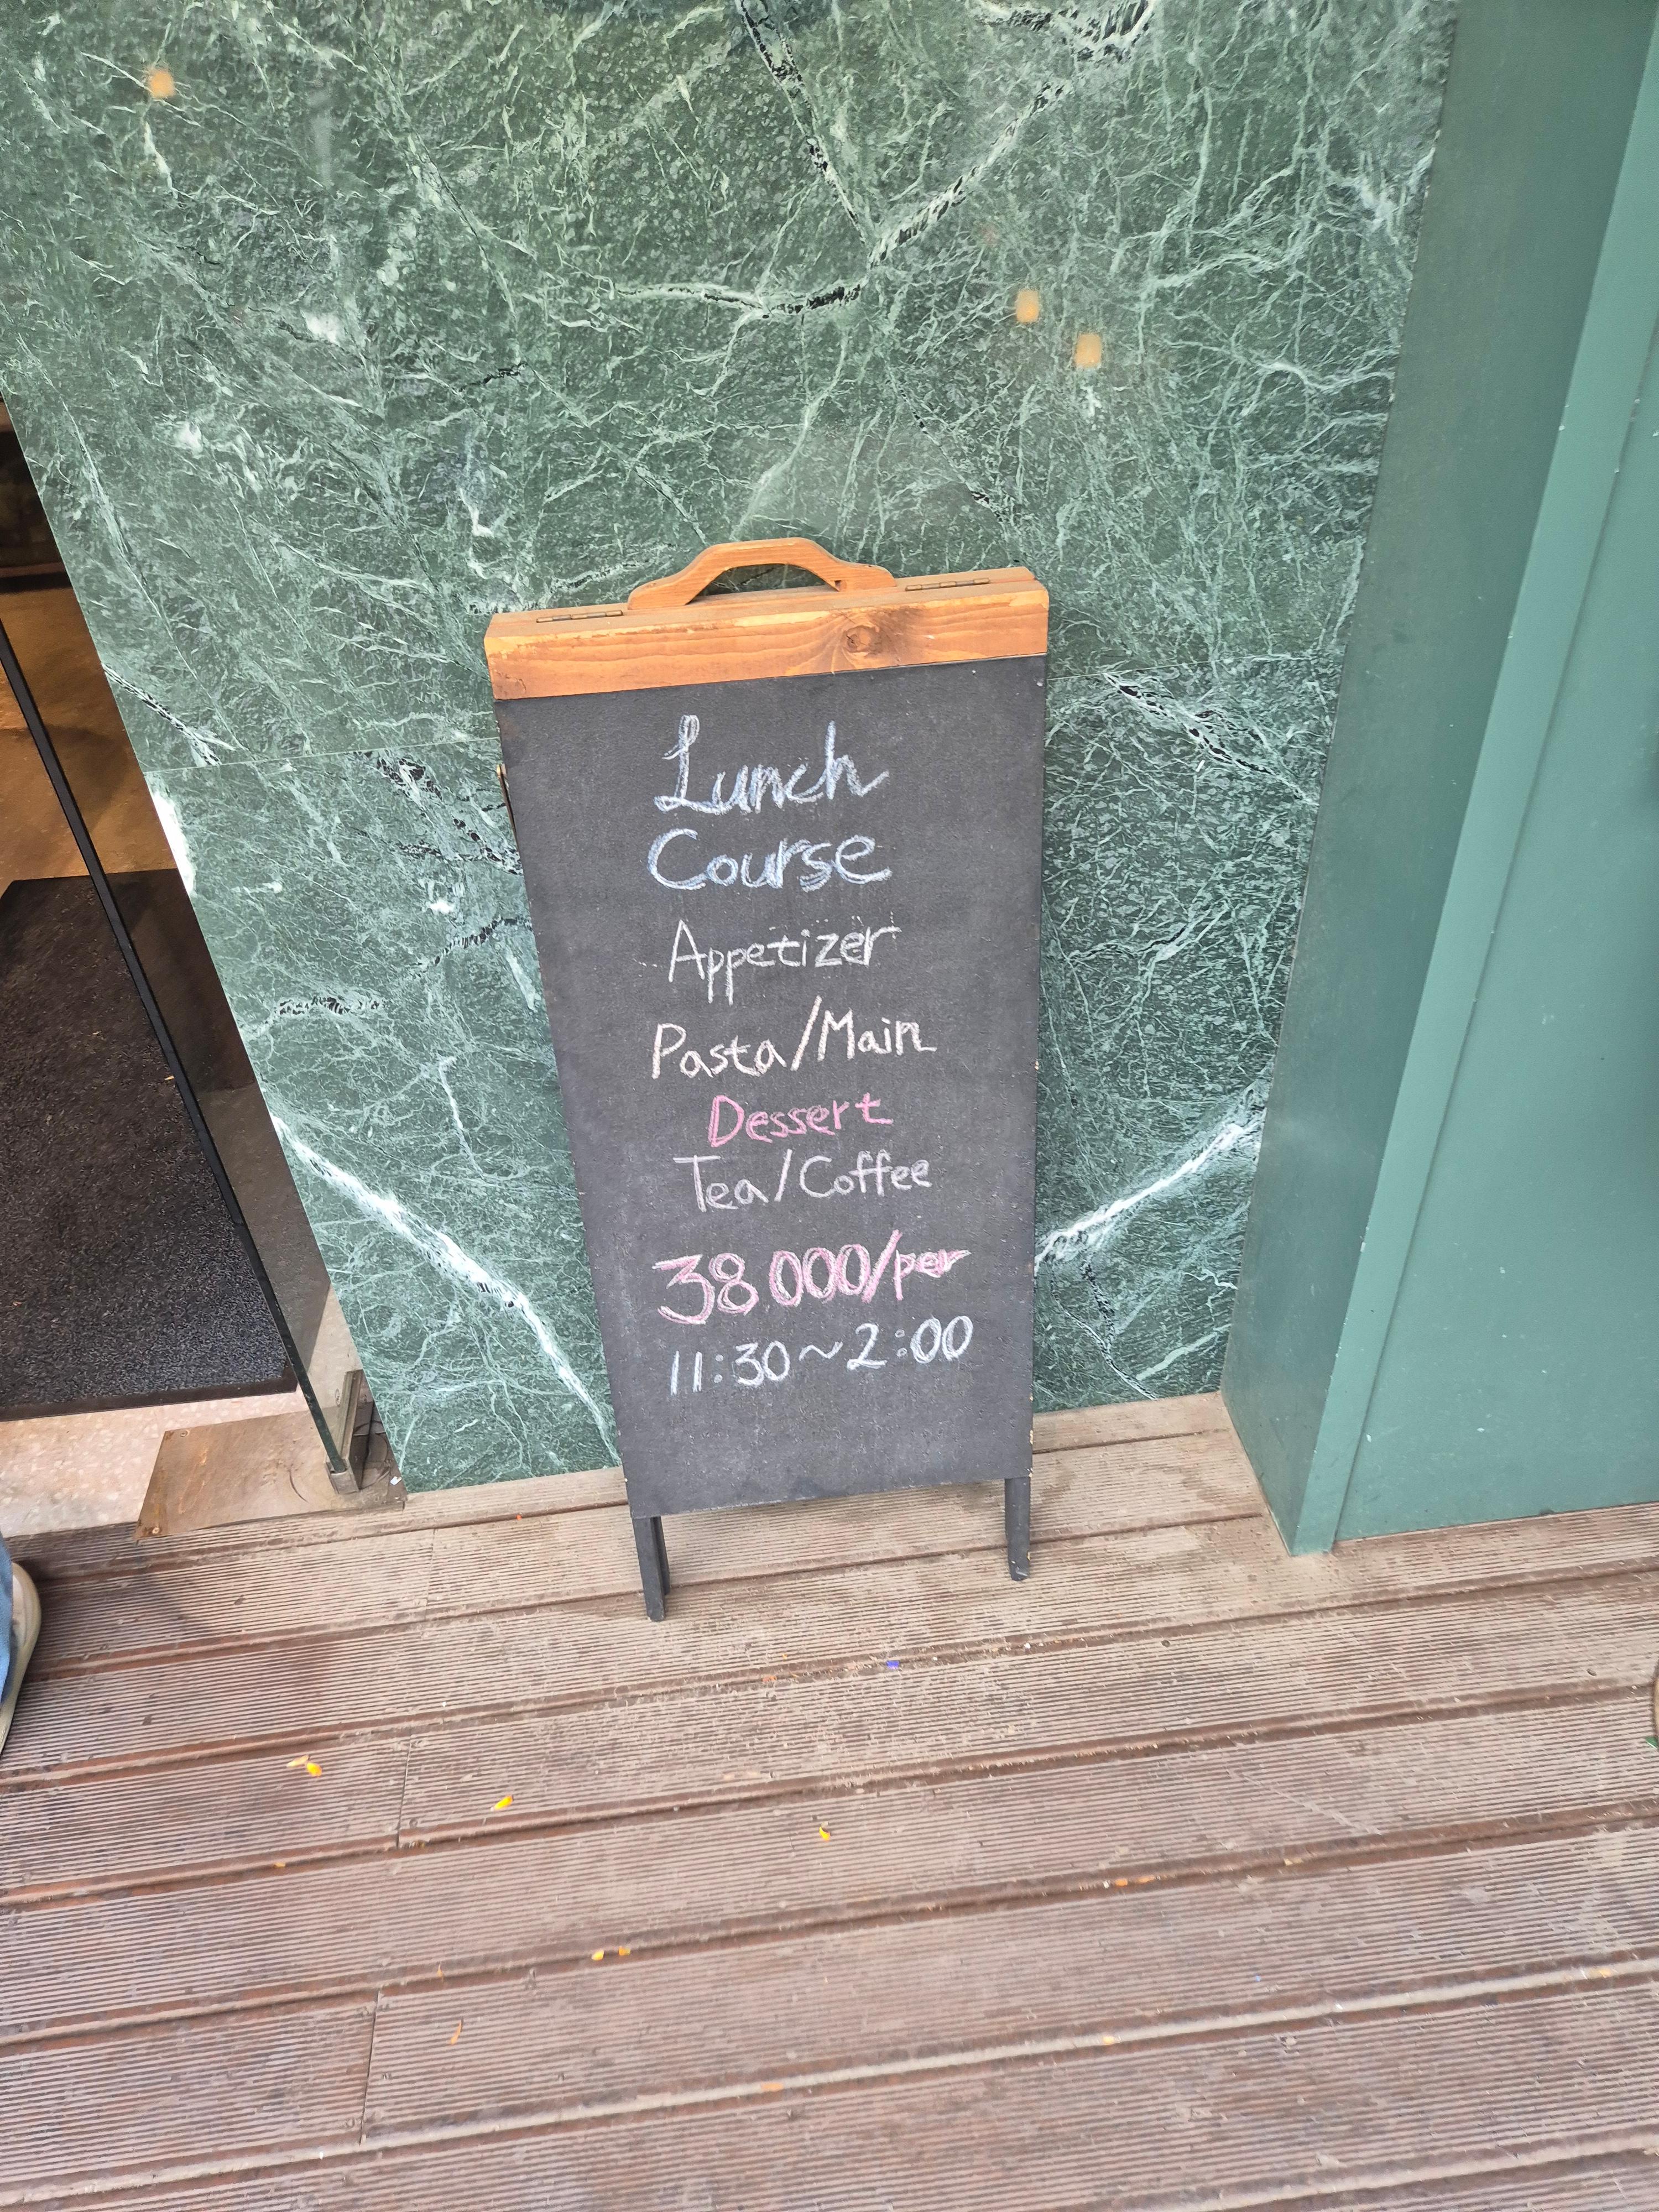 Lunch
Course
Appetizer
Pasta/Main
Dessert
Tea/Coffee
38.000/per
11:30~2:00